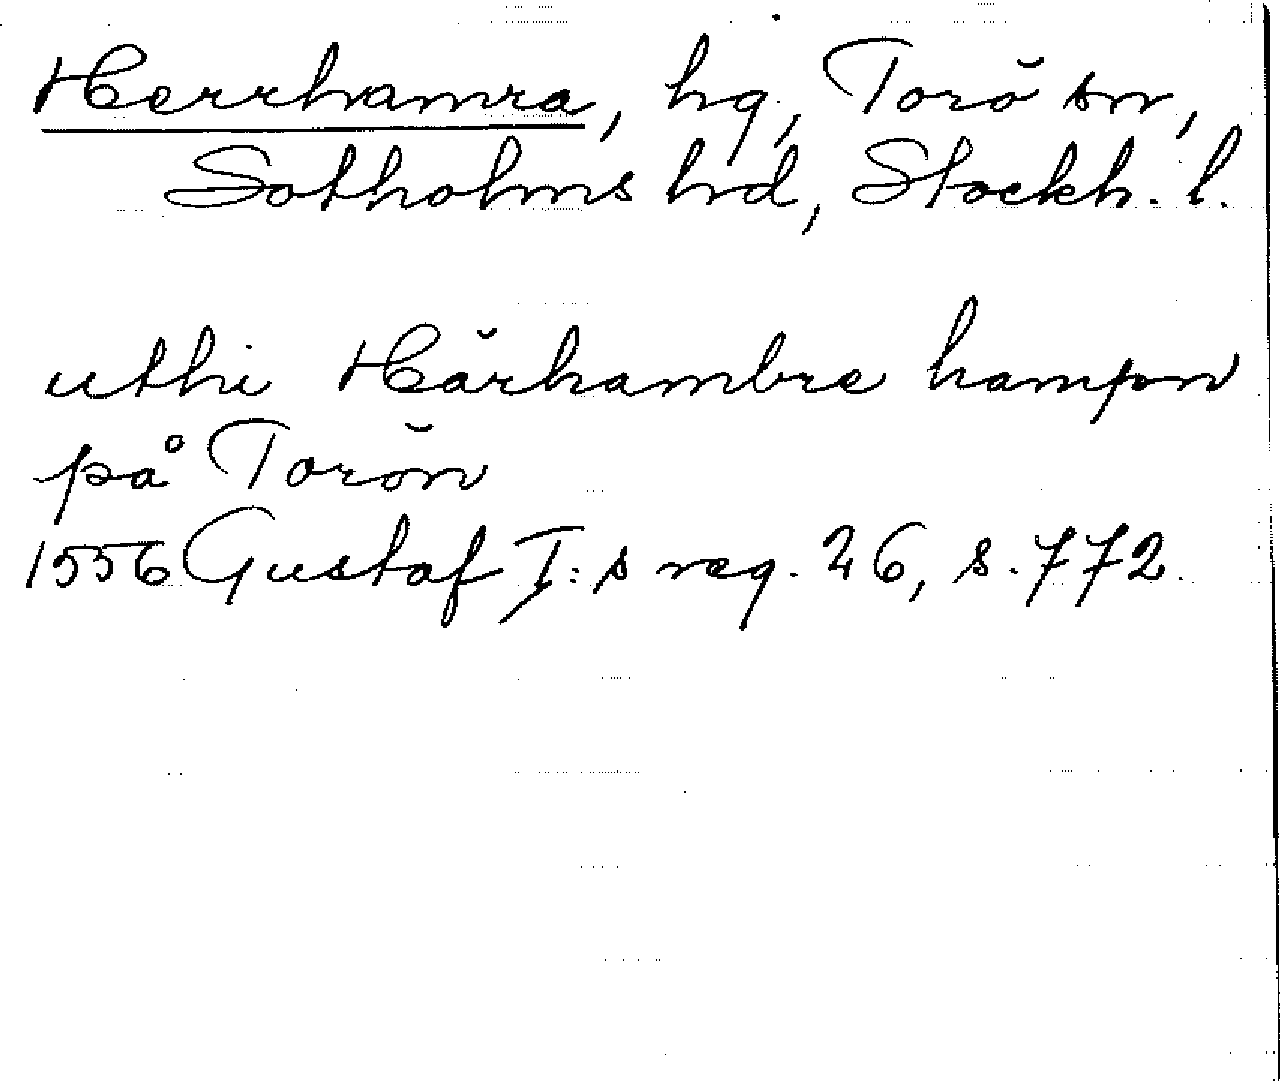 Herrhamra, hg, Torö sn,
Sotholms hd, Stockh. l.
uthi Härhambre hampn
på Torön
1556 Gustaf I:s reg. 26, s. 772.